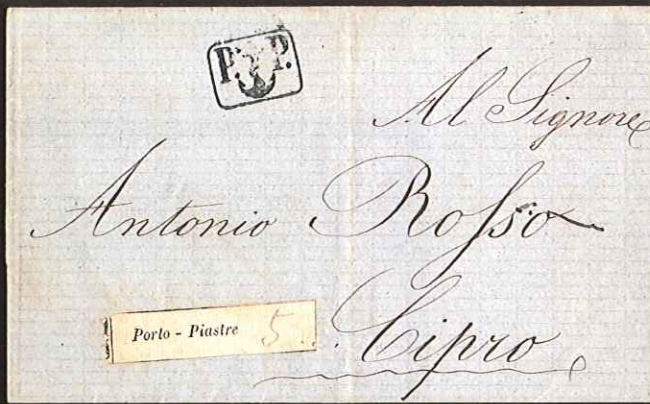 P. P.
Al Signore
Antonio Rosso
Porto - Piastre 5
Cipro